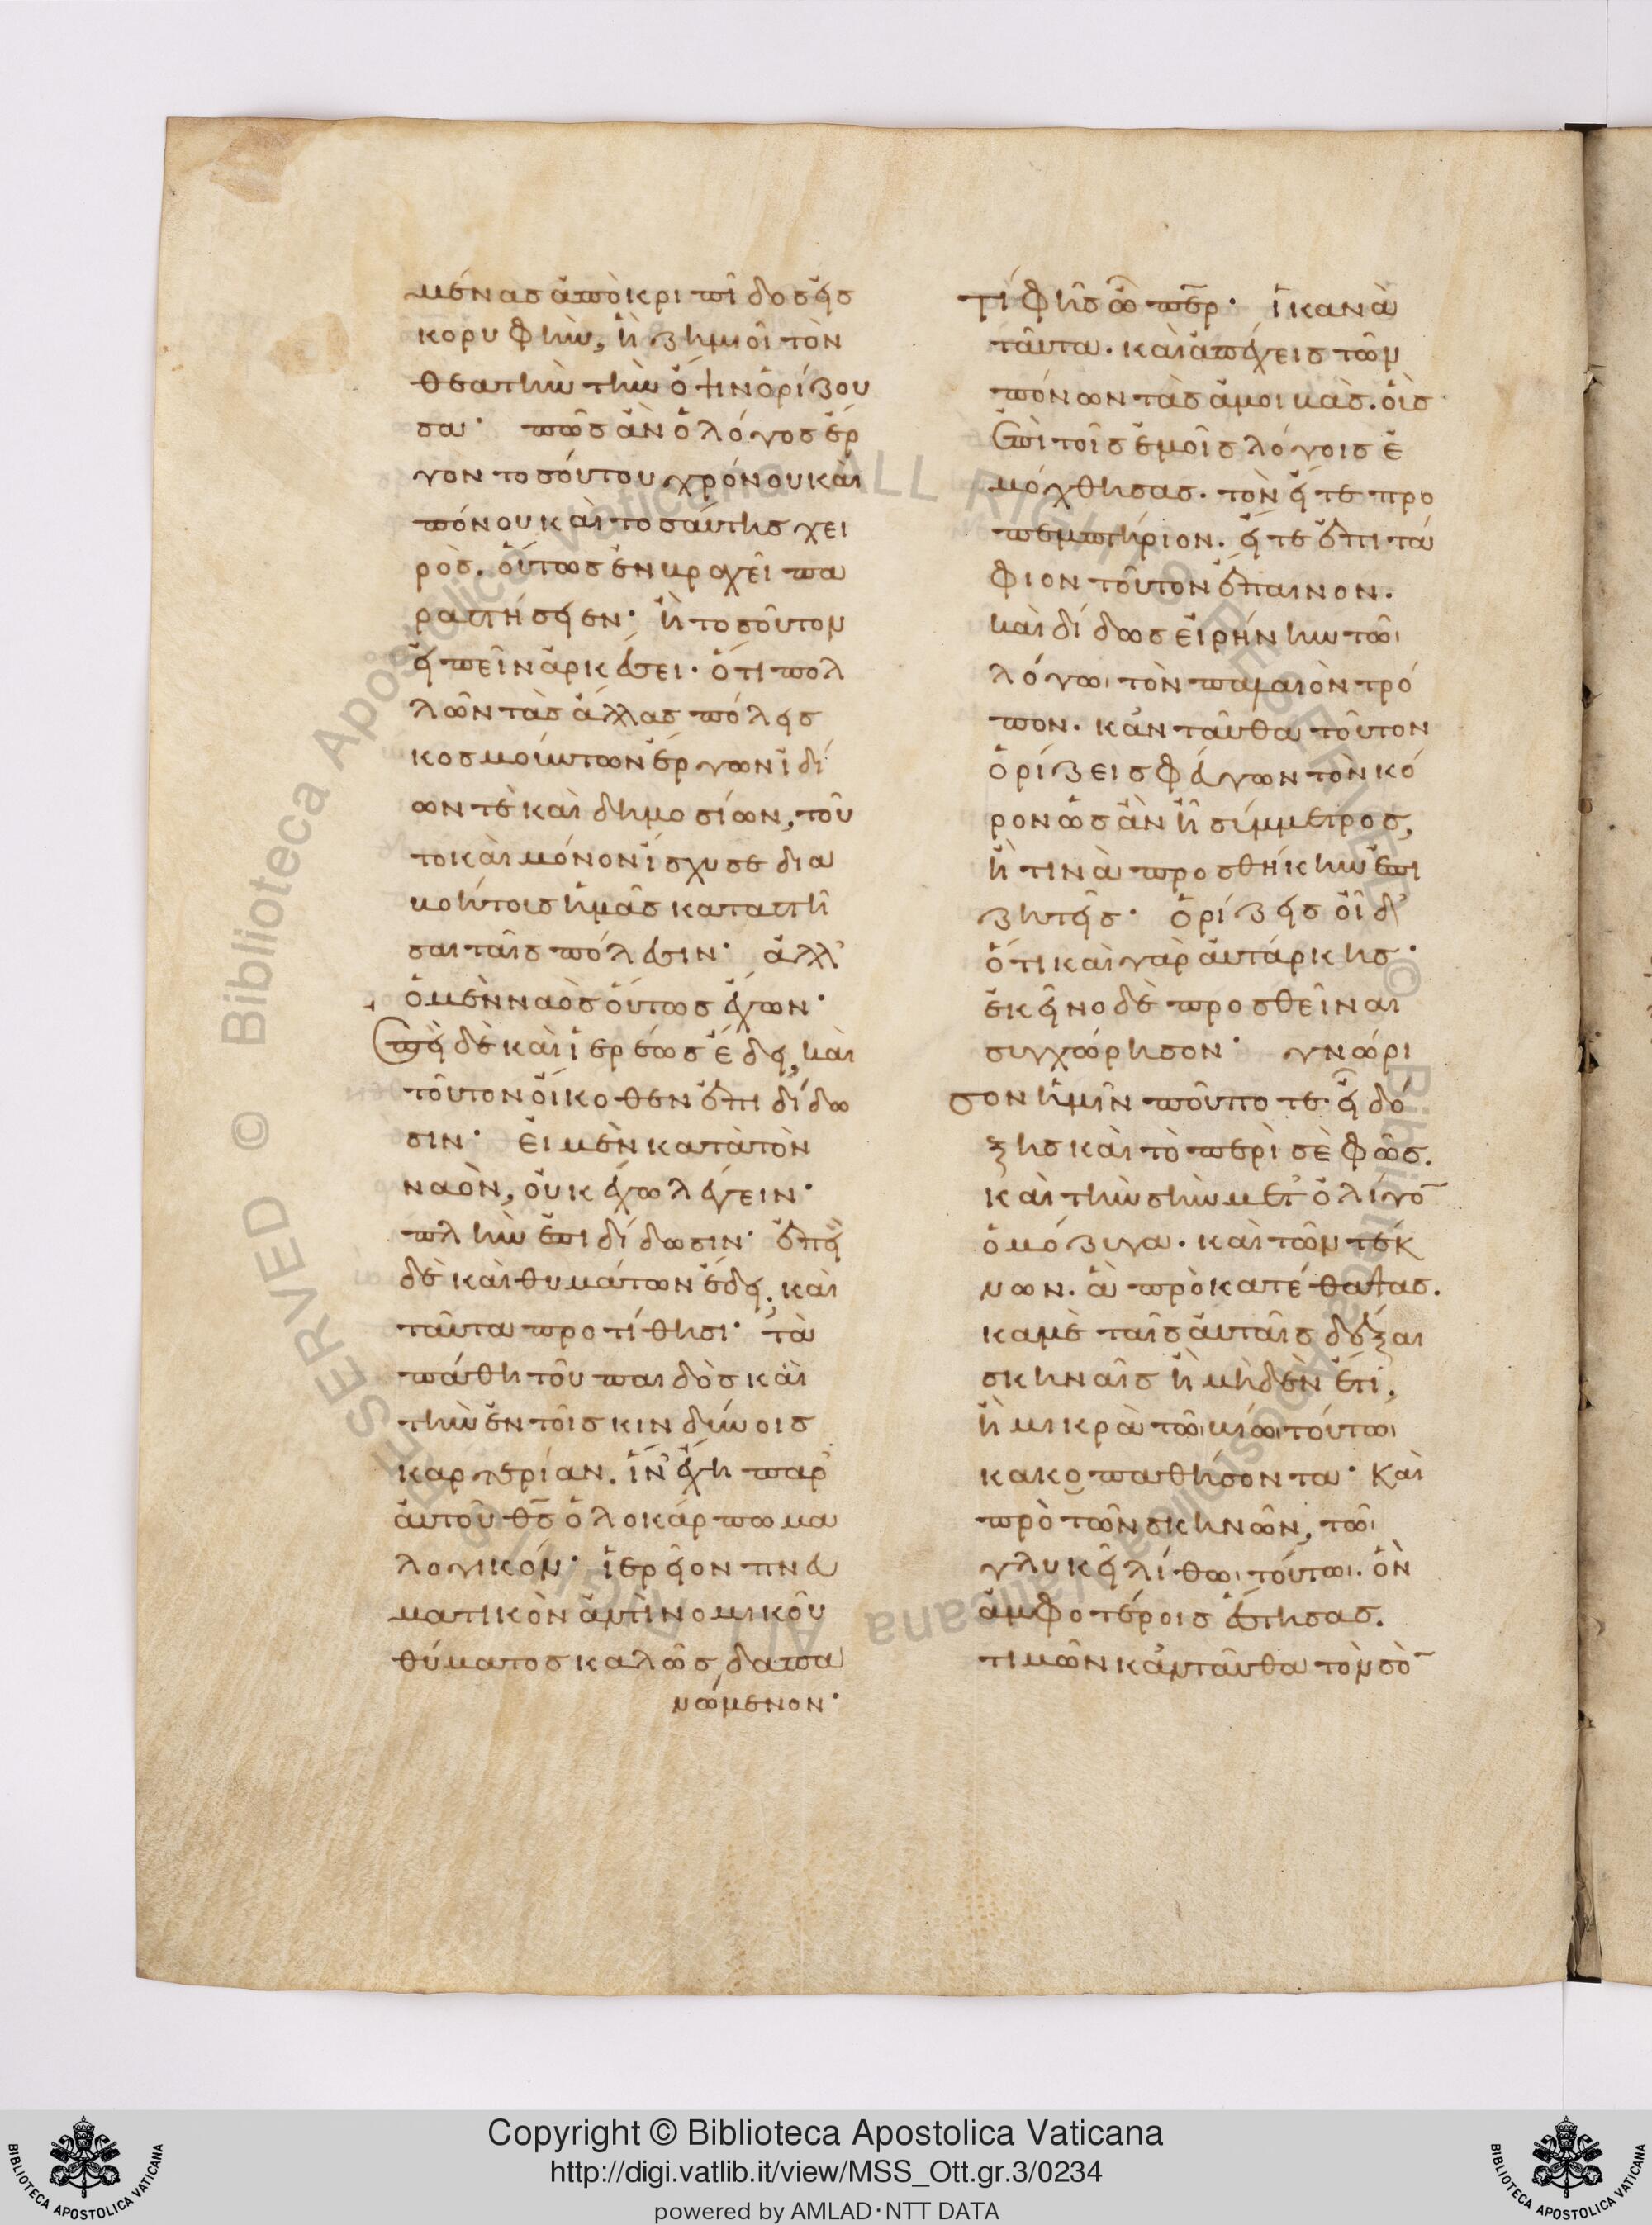 μένας ἀποκριπίδος εἰς
κορυφὴν, ἢ ζημιοῖ τὸν
θεατὴν τὴν ὄψιν ὁρίζου
σα· πῶς ἂν ὁ λόγος ἔρ
γον τοσούτου χρόνου καὶ
πόνου καὶ τοσαύτης χει
ρὸς. οὕτως ἐν βραχεῖ πα
ραστήσειεν· ἢ τοσοῦτον
εἰπεῖν ἀρκέσει. ὅτι πολ
λῶν τὰς ἄλλας πόλεις
κοσμούντων ἔργων ἰδί
ων τὲ καὶ δημοσίων, τοῦ
το καὶ μόνον ἴσχυσε δια
βοήτοις ἡμᾶς καταστῆ
σαι ταῖς πόλεσιν· ἀλλ'
ὁ μὲν ναὸς οὕτως ἔχων·
ἐπεὶ δὲ καὶ ἱερέως ἔδει, καὶ
τοῦτον οἴκοθεν ἐπιδίδω
σιν· εἰ μὲν κατὰ τὸν
ναὸν, οὐκ ἔχω λέγειν·
πλὴν ἐπιδίδωσιν· ἐπεὶ
δὲ καὶ θυμάτων ἔδει, καὶ
ταῦτα προτίθησι· τὰ
πάθη τοῦ παιδὸς καὶ
τὴν ἐν τοῖς κινδύνοις
καρτερίαν. ἵν' ἔχη παρ'
αὐτοῦ θς ὁλοκάρπωμα
λογικόν· ἱερεῖον πνευ
ματικὸν ἀντὶ νομικοῦ
θύματος καλῶς δαπα
νώμενον·
τί φῂς ὦ περ· ἱκανὰ
ταῦτα. καὶ ἀπέχεις τῶν
πόνων τὰς ἀμοιβὰς. οἷς
ἐπὶ τοῖς ἐμοῖς λόγοις ἐ
μόχθησας. τὸν εἴτε προ
πεμπτήριον. εἴτε ἐπιτά
φιον τοῦτον ἔπαινον.
καὶ δίδως εἰρήνην τῶι
λόγωι τὸν παλαιὸν τρό
πον. κἀνταῦθα τοῦτον
ὁρίζεις φεύγων τὸν κό
ρον ὡς ἂν ἦ σύμμετρος,
ἤ τινὰ προσθήκην ἐπι
ζητεῖς· ὁρίζεις οἶδ'
ὅτι καὶ γὰρ αὐτάρκης·
ἐκεῖνο δὲ προσθεῖναι
συγχώρησον· γνώρι
σον ἡμῖν ποῦ ποτε εἶ δό
ξης καὶ τὸ περὶ σὲ φῶς.
καὶ τὴν σὴν μετ' ὀλίγο̄
ὁμόζυγα. καὶ τῶν τέκ
νων. ἃ πρὸ κατέθαψας.
καμὲ ταῖς αὐταῖς δέξαι
σκηναῖς ἢ μηδὲν ἔτι,
ἢ μικρὰ τῶι βίωι τούτωι
κακοπαθήσοντα· καὶ
πρὸ τῶν σκηνῶν, τῶι
γλυκεῖ λίθωι τούτωι. ὃν
ἀμφοτέροις ἔστησας.
τιμῶν κἀνταῦθα τὸν σὸ̄
Copyright © Biblioteca Apostolica Vaticana
http://digi.vatlib.it/view/MSS_Ott.gr.3/0234
powered by AMLAD·NTT DATA